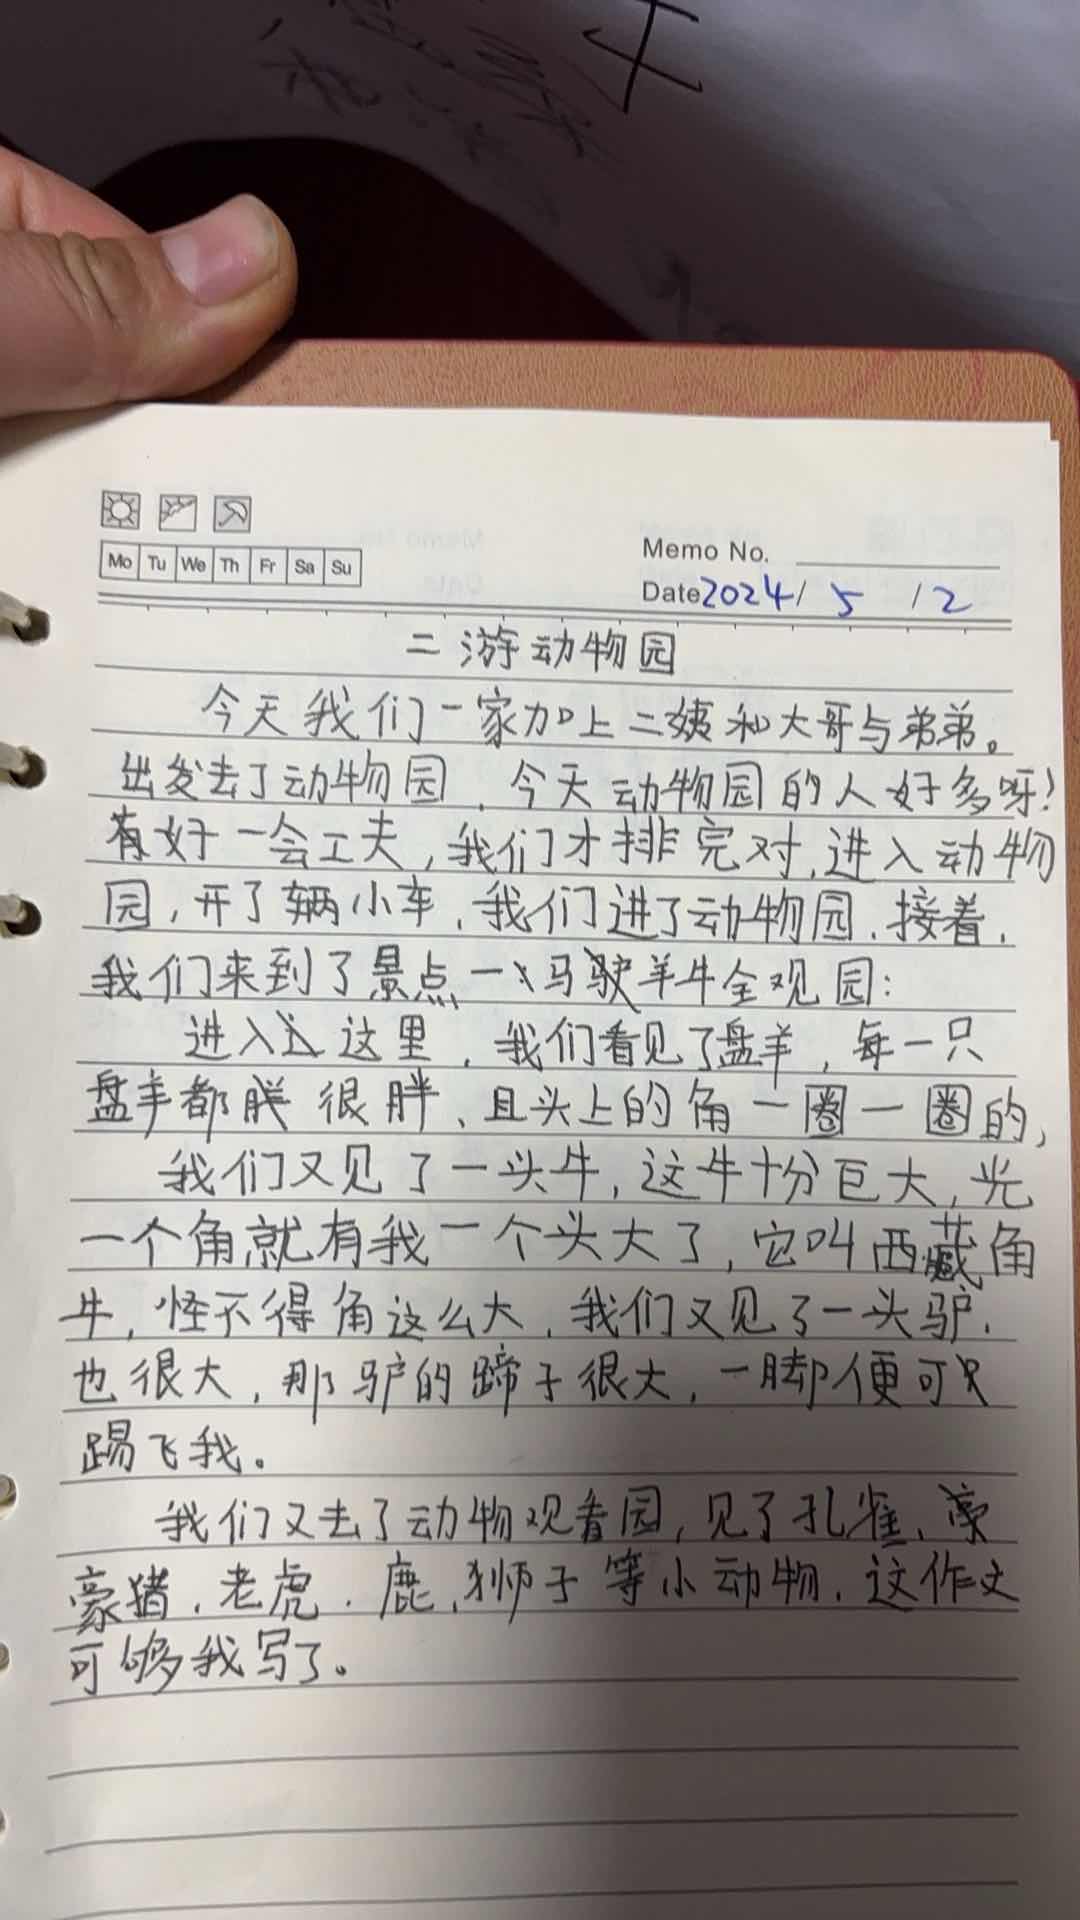 Mo Tu We Th Fr Sa Su
Memo No.
Date 2024/5/2
二游动物园
今天我们一家加上二姨和大哥与弟弟。
出发去了动物园，今天动物园的人好多呀！
有好一会工夫，我们才排完对，进入动物
园，开了辆小车，我们进了动物园，接着，
我们来到了景点一马驴羊牛全观园：
进入这里，我们看见了盘羊，每一只
盘羊都很胖、且头上的角一圈一圈的，
我们又见了一头牛，这牛十分巨大，光
一个角就有我一个头大了，它叫西藏角
牛，怪不得角这么大，我们又见了一头驴，
也很大，那驴的蹄子很大，一脚便可以
踢飞我。
我们又去了动物观看园，见了孔雀、
豪猪、老虎、鹿、狮子等小动物，这作文
可够我写了。